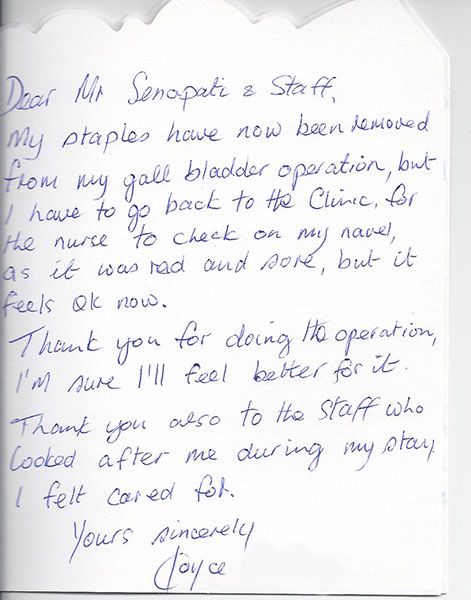 Dear Mr Senapati & Staff,
My staples have now been removed
from my gall bladder operation, but
I have to go back to the Clinic, for
the nurse to check on my navel,
as it was red and sore, but it
feels OK now.
Thank you for doing the operation,
I'm sure I'll feel better for it.
Thank you also to the Staff who
looked after me during my stay,
I felt cared for.
Yours sincerely
Joyce